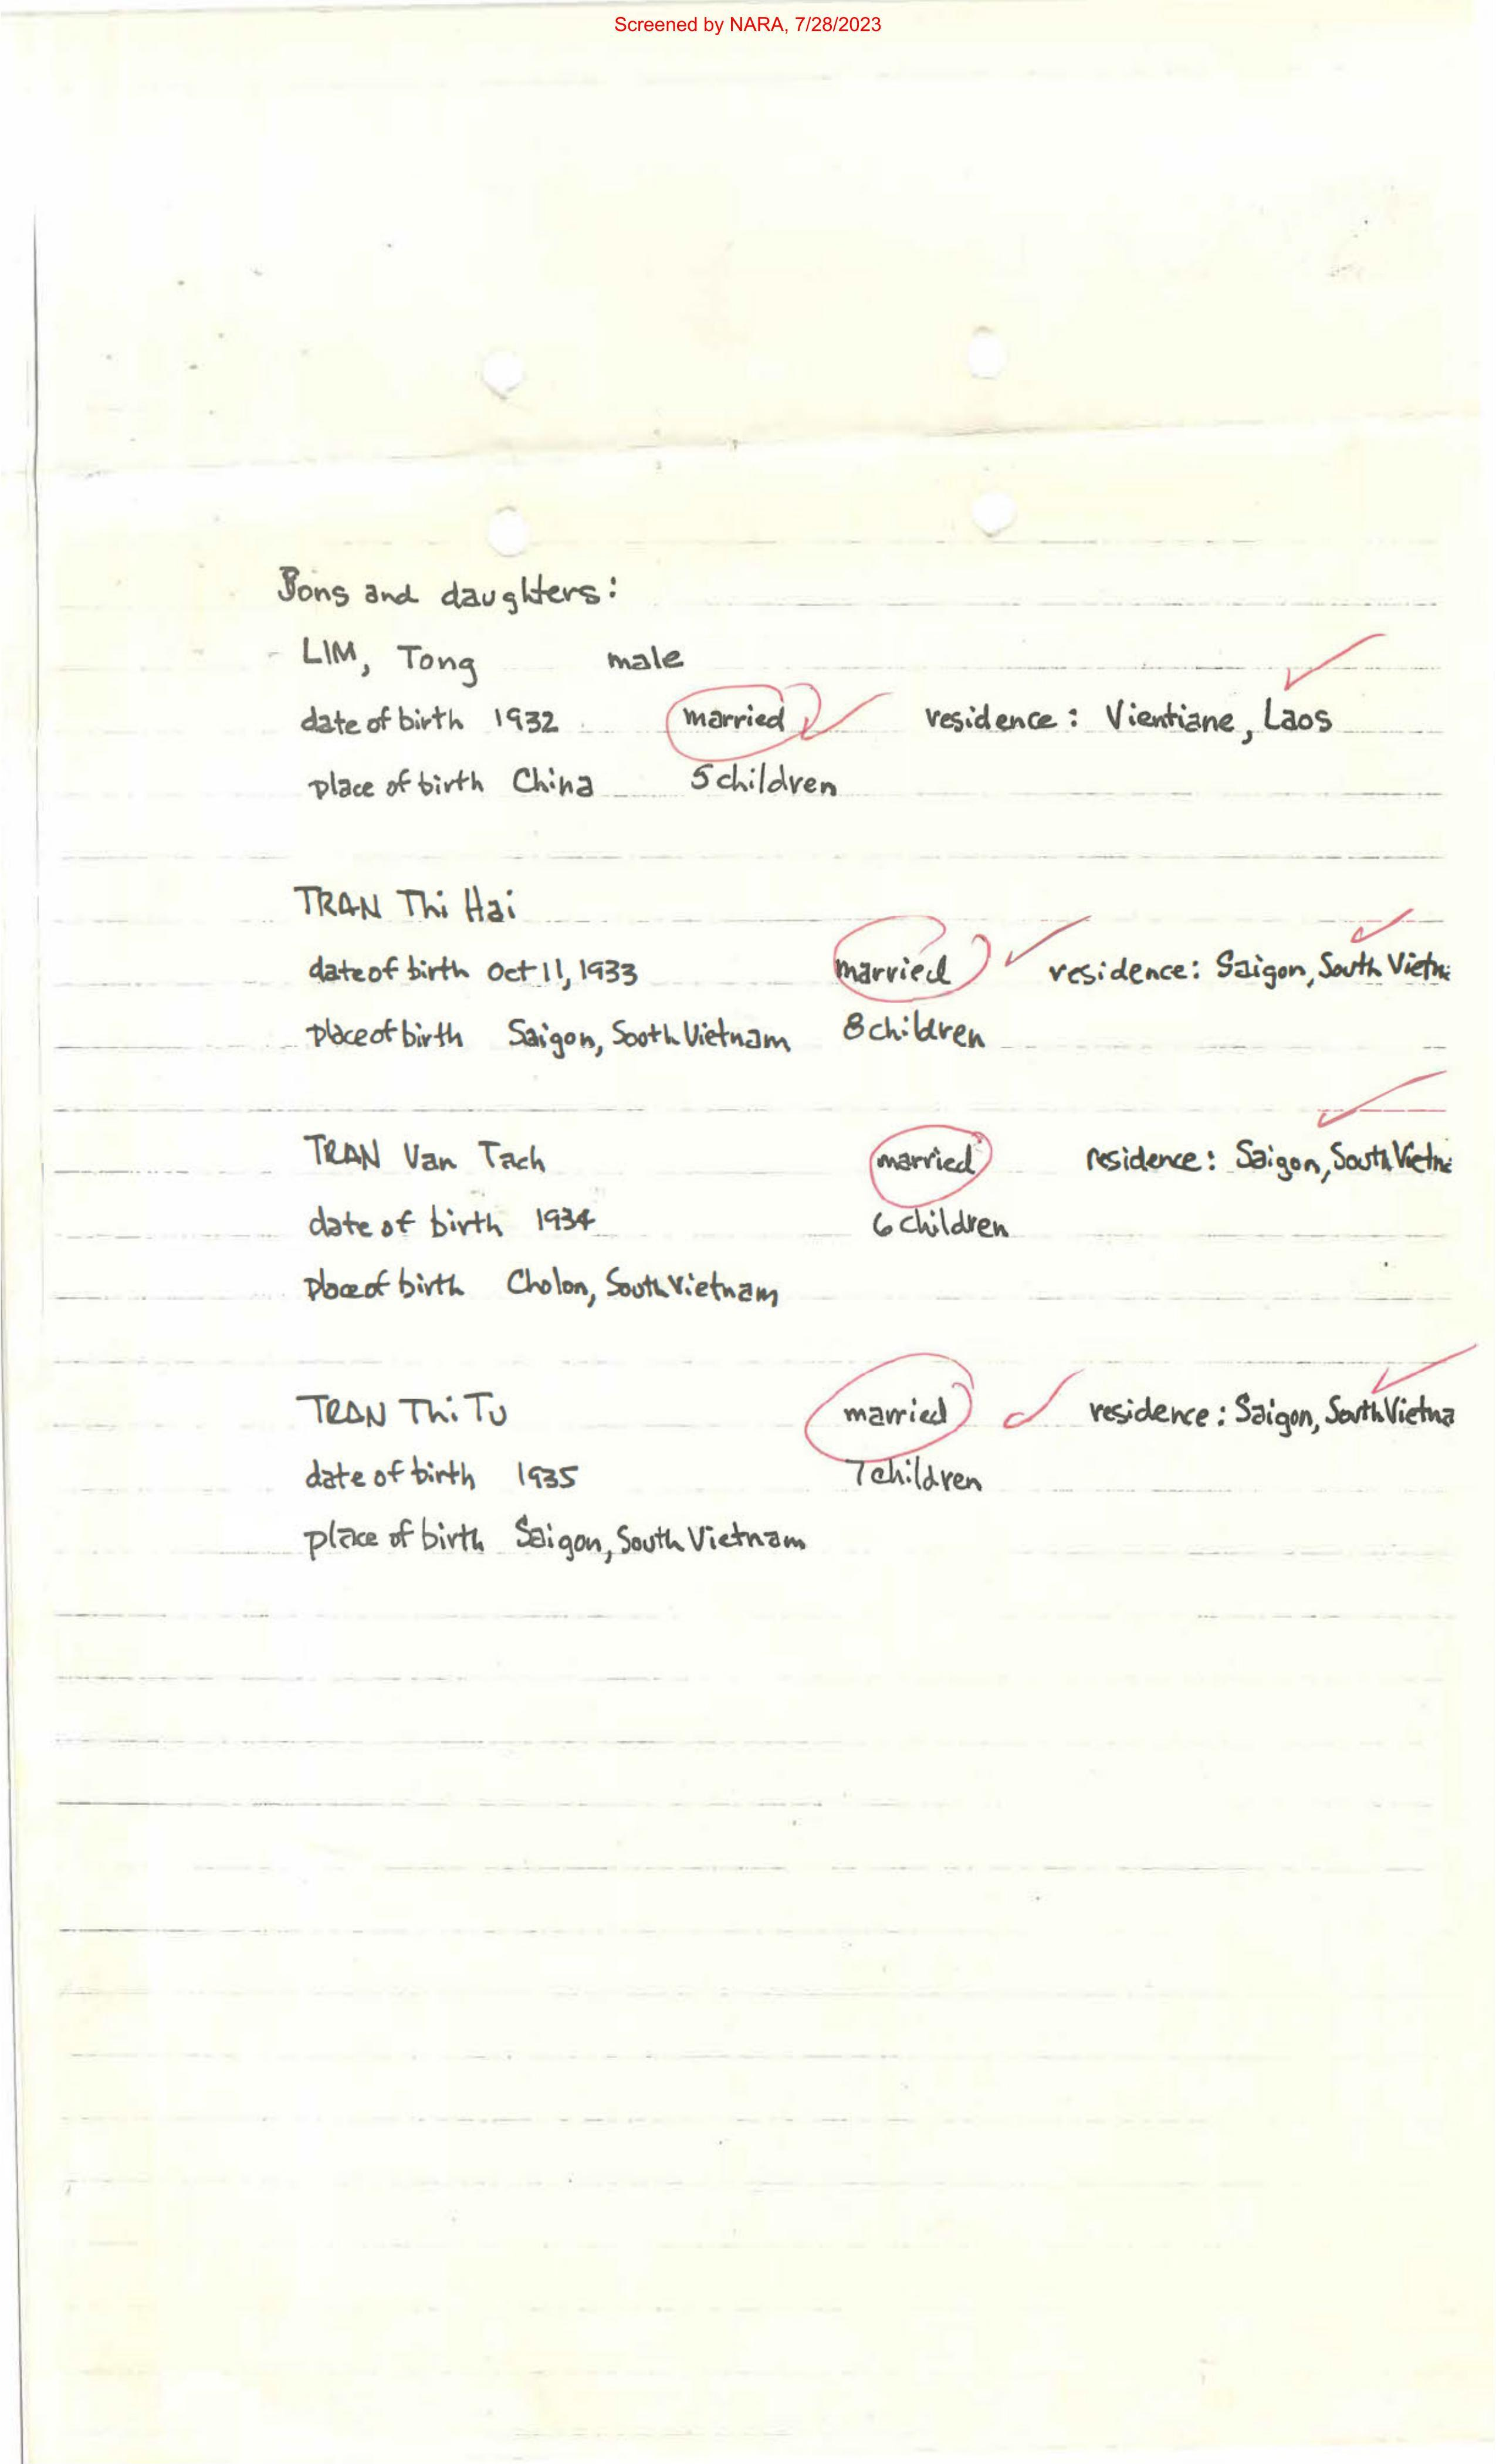 Screened by NARA, 7/28/2023
Sons and daughters:
- LIM, Tong male
date of birth 1932 married residence: Vientiane, Laos
place of birth China 5 children
TRAN Thi Hai
date of birth Oct 11, 1933 married residence: Saigon, South Vietna
place of birth Saigon, South Vietnam 8 children
TRAN Van Tach married residence: Saigon, South Vietna
date of birth 1934 6 children
place of birth Cholon, South Vietnam
TRAN Thi Tu married residence: Saigon, South Vietna
date of birth 1935 7 children
place of birth Saigon, South Vietnam